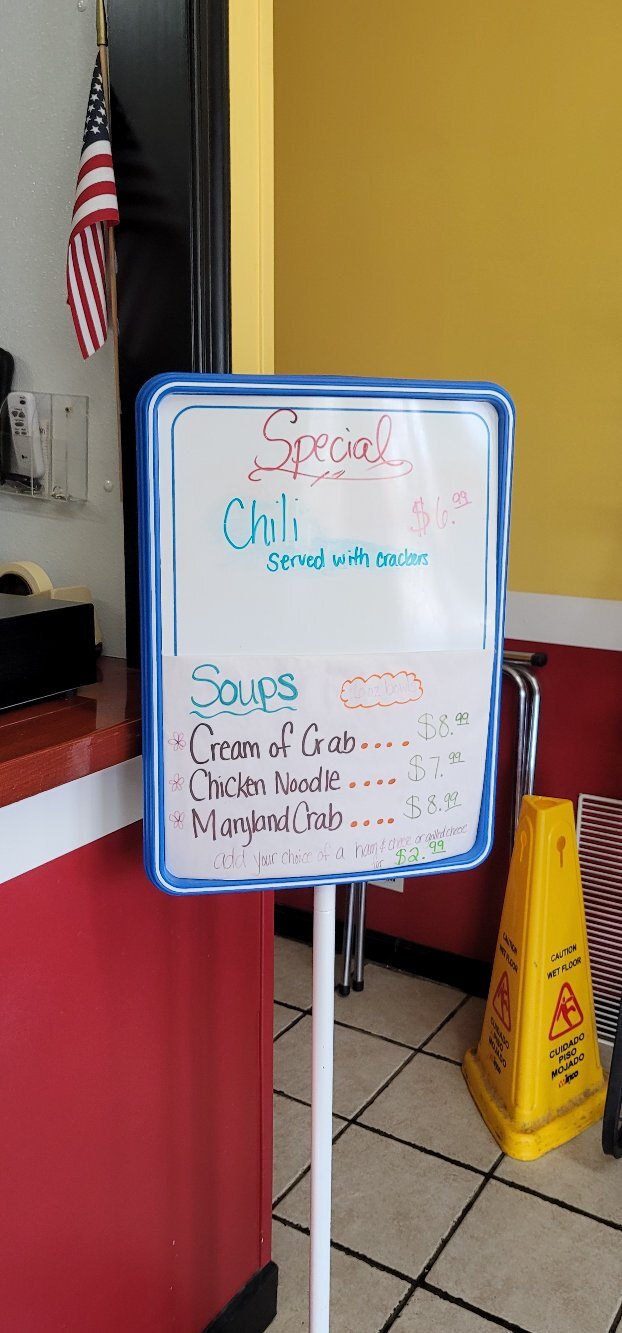 Special
Chili $6.99
Served with crackers
Soups
Cream of Crab.... $8.99
Chicken Noodle .... $7.99
Maryland Crab .... $8.99
add your choice of a ham & chese or grilled cheese
for $2.99
CAUTION
WET FLOOR
CUIDADO
PISO
MOJADO
winco
CAUTION
WET FLOOR
CUIDADO
PISO
MOJADO